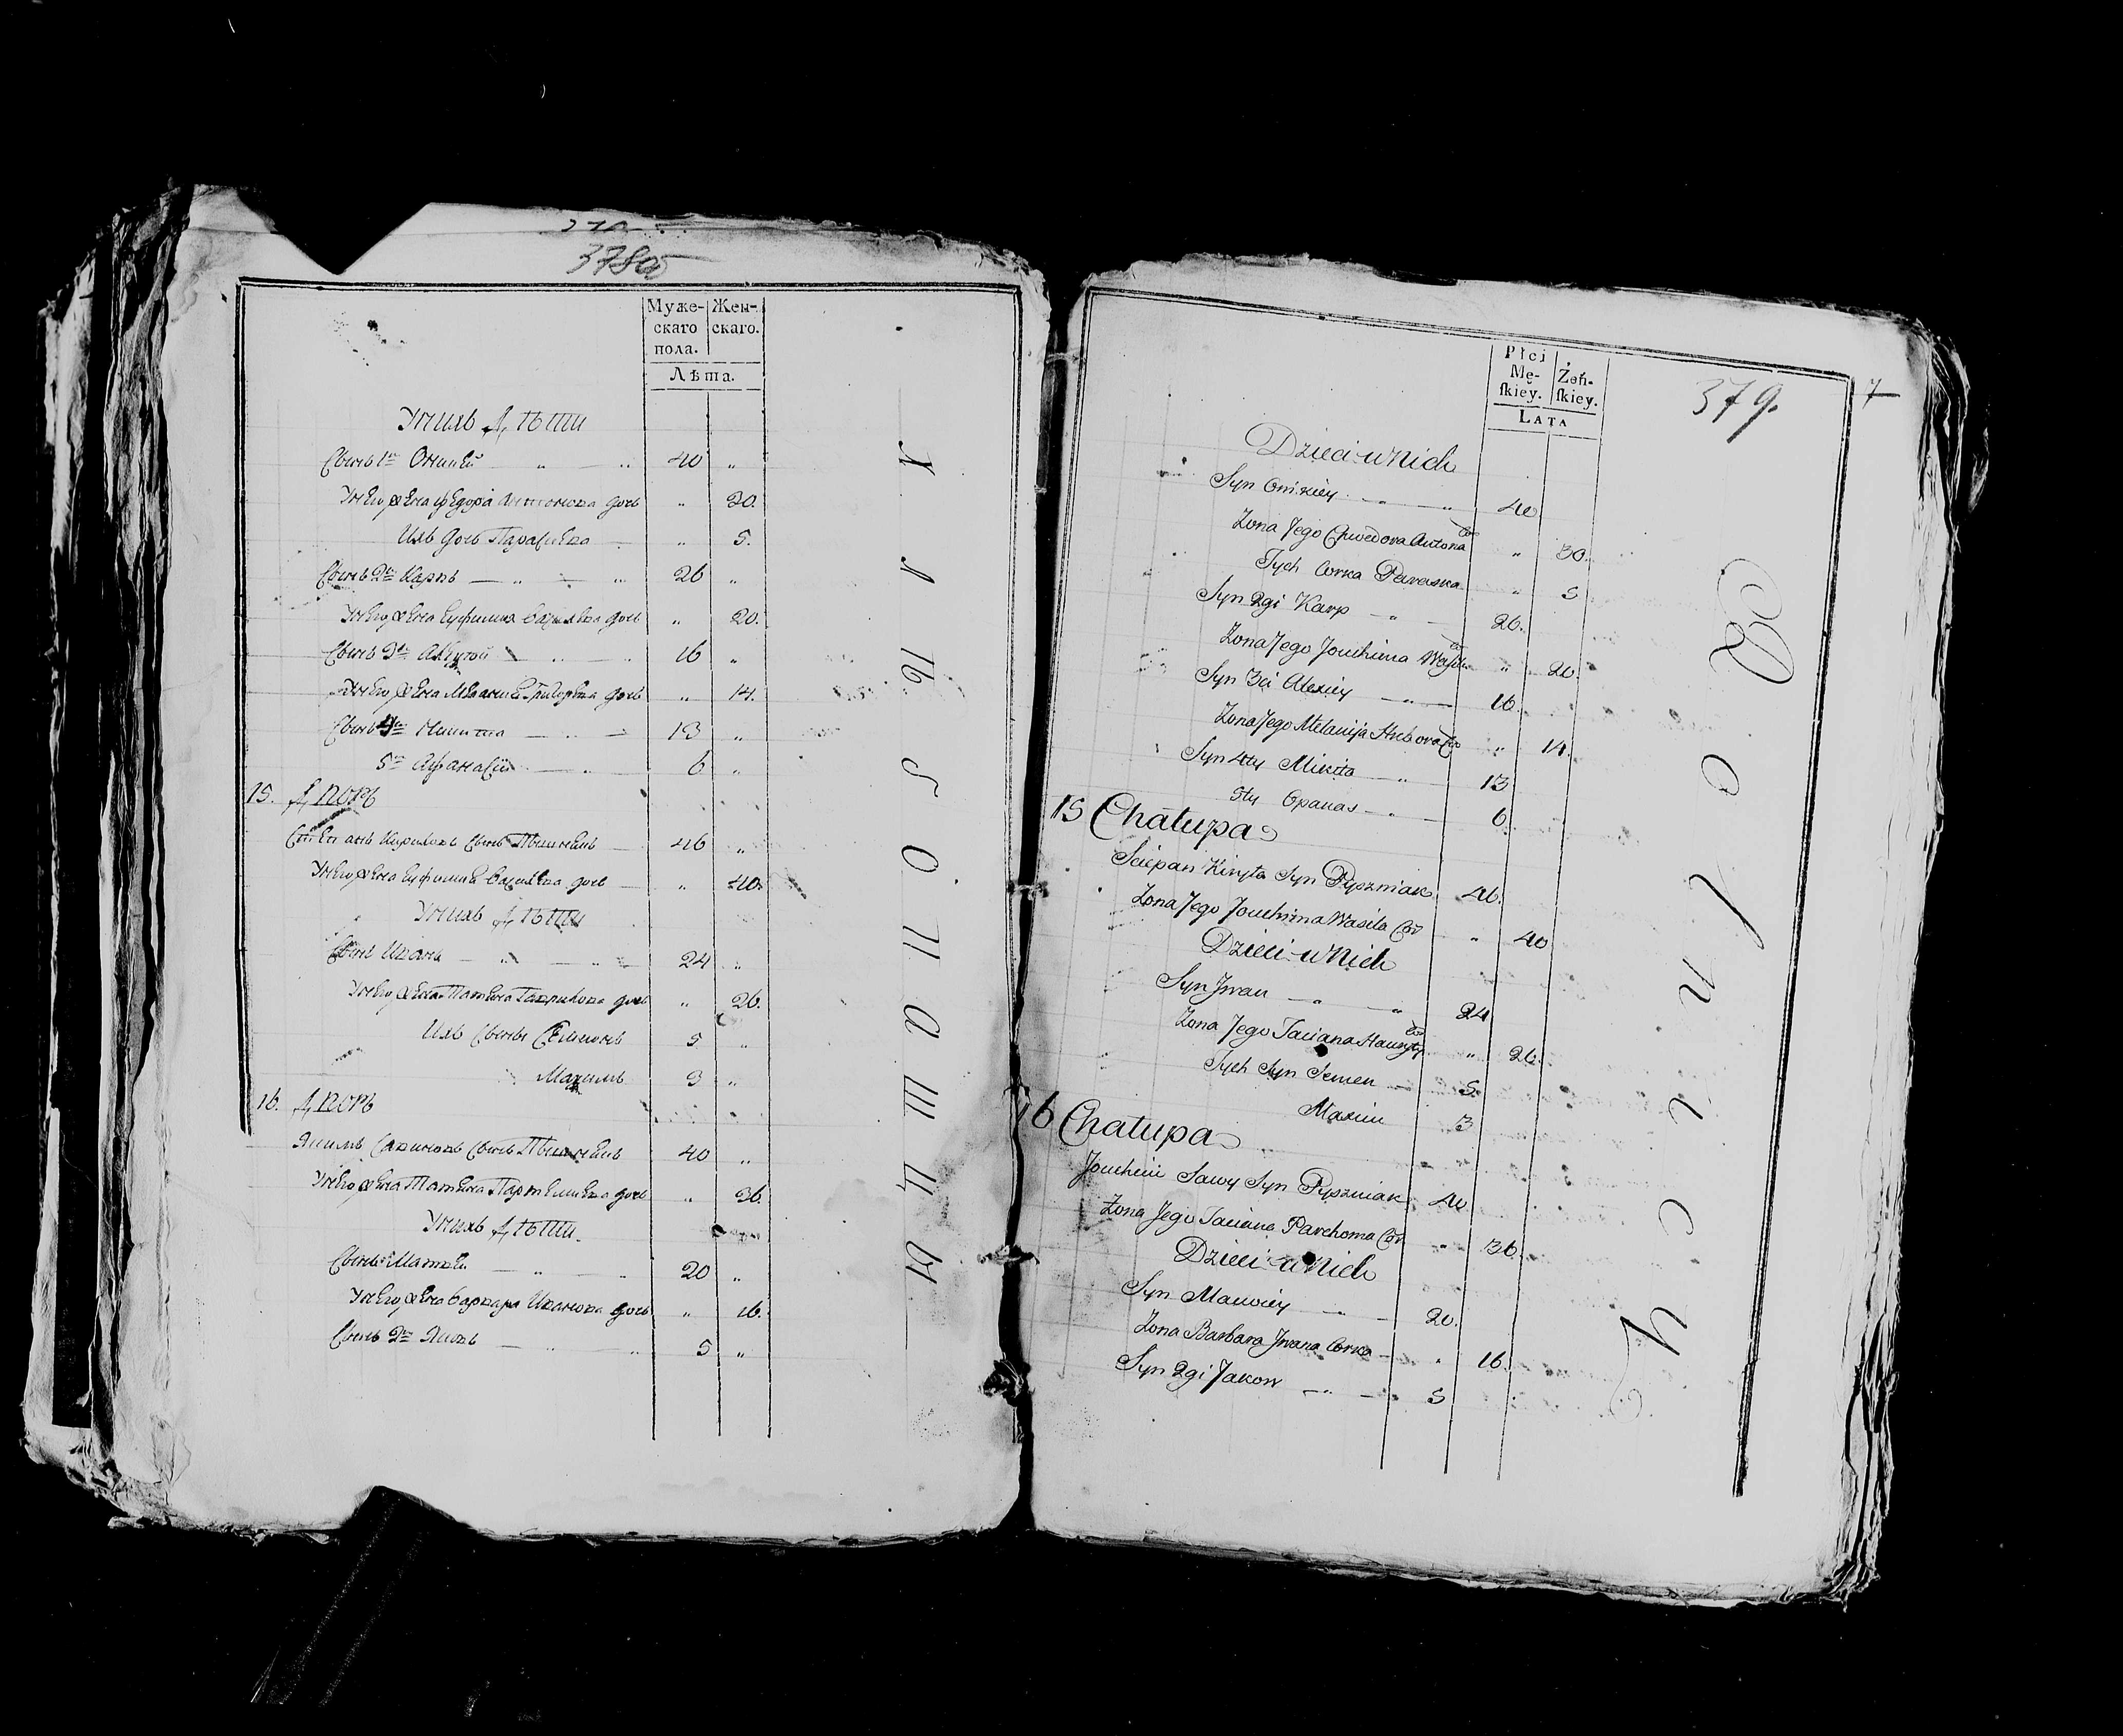 378об
Муже-
скаго
пола.
Жен-
скаго.
Лѣта.
У нихъ Дѣти
Сынъ 1й Оникей 40 „
У него жена Федора Антонова дочь „ 20.
Ихъ дочь Параскева „ 5.
Сынъ 2й Карпъ 26 „
У него жена Еуфимия Василева дочь „ 20.
Сынъ 3й 16 „
У него жена Мелания Григорева дочь „ 14.
Сынъ 4й Никита 13 „
5й Афанасий 6 „
15. Дворъ
Степанъ Кириловъ Сынъ 46 „
У него жена Еуфимия Василева дочь „ 40.
У нихъ Дѣти
Сынъ Иванъ 24 „
У него жена Татяна Гаврилова дочь „ 26.
Ихъ Сыны Семионъ 5 „
Максимъ 3 „
16. Дворъ
Якимъ Савиновъ Сынъ 40 „
У него жена Татяна дочь „ 36.
У нихъ Дѣти
Сынъ Матвей 20 „
У него жена Варвара Иванова дочь „ 16.
Сынъ 2й Яковъ 5 „
Płci
Mę-
skiey.
Żeń-
skiey.
LATA
379.
7
Dzieci u Nich
Syn Onikiey 40
Zona Jego Chwedora Antona Co „ 30.
Tych Corka Paraska „ 5
Syn 2gi Karp 26.
Zona Jego Jouchima Wasila Co „ 20.
Syn 3ci Alexiey 16.
Zona Jego Melanija Hrehora Co „ 14.
Syn 4ty Mikita 13
5ty Opanas 6.
15 Chałupa
Sciepan Kiryła Syn Pyszniak 46.
Zona Jego Jouchima Wasila Cor „ 40
Dzieci u Nich
Syn Jwan 24
Zona Jego Taciana Hauryły Co „ 26.
Tych Syn Semen 5.
Maxim 3
16 Chałupa
Jouchim Sawy Syn Pyszniak 40
Zona Jego Taciana Parchoma Cor „ 36.
Dzieci u Nich
Syn Mauwiey 20.
Zona Barbara Jwana Corka „ 16.
Syn 2gi Jakow 5